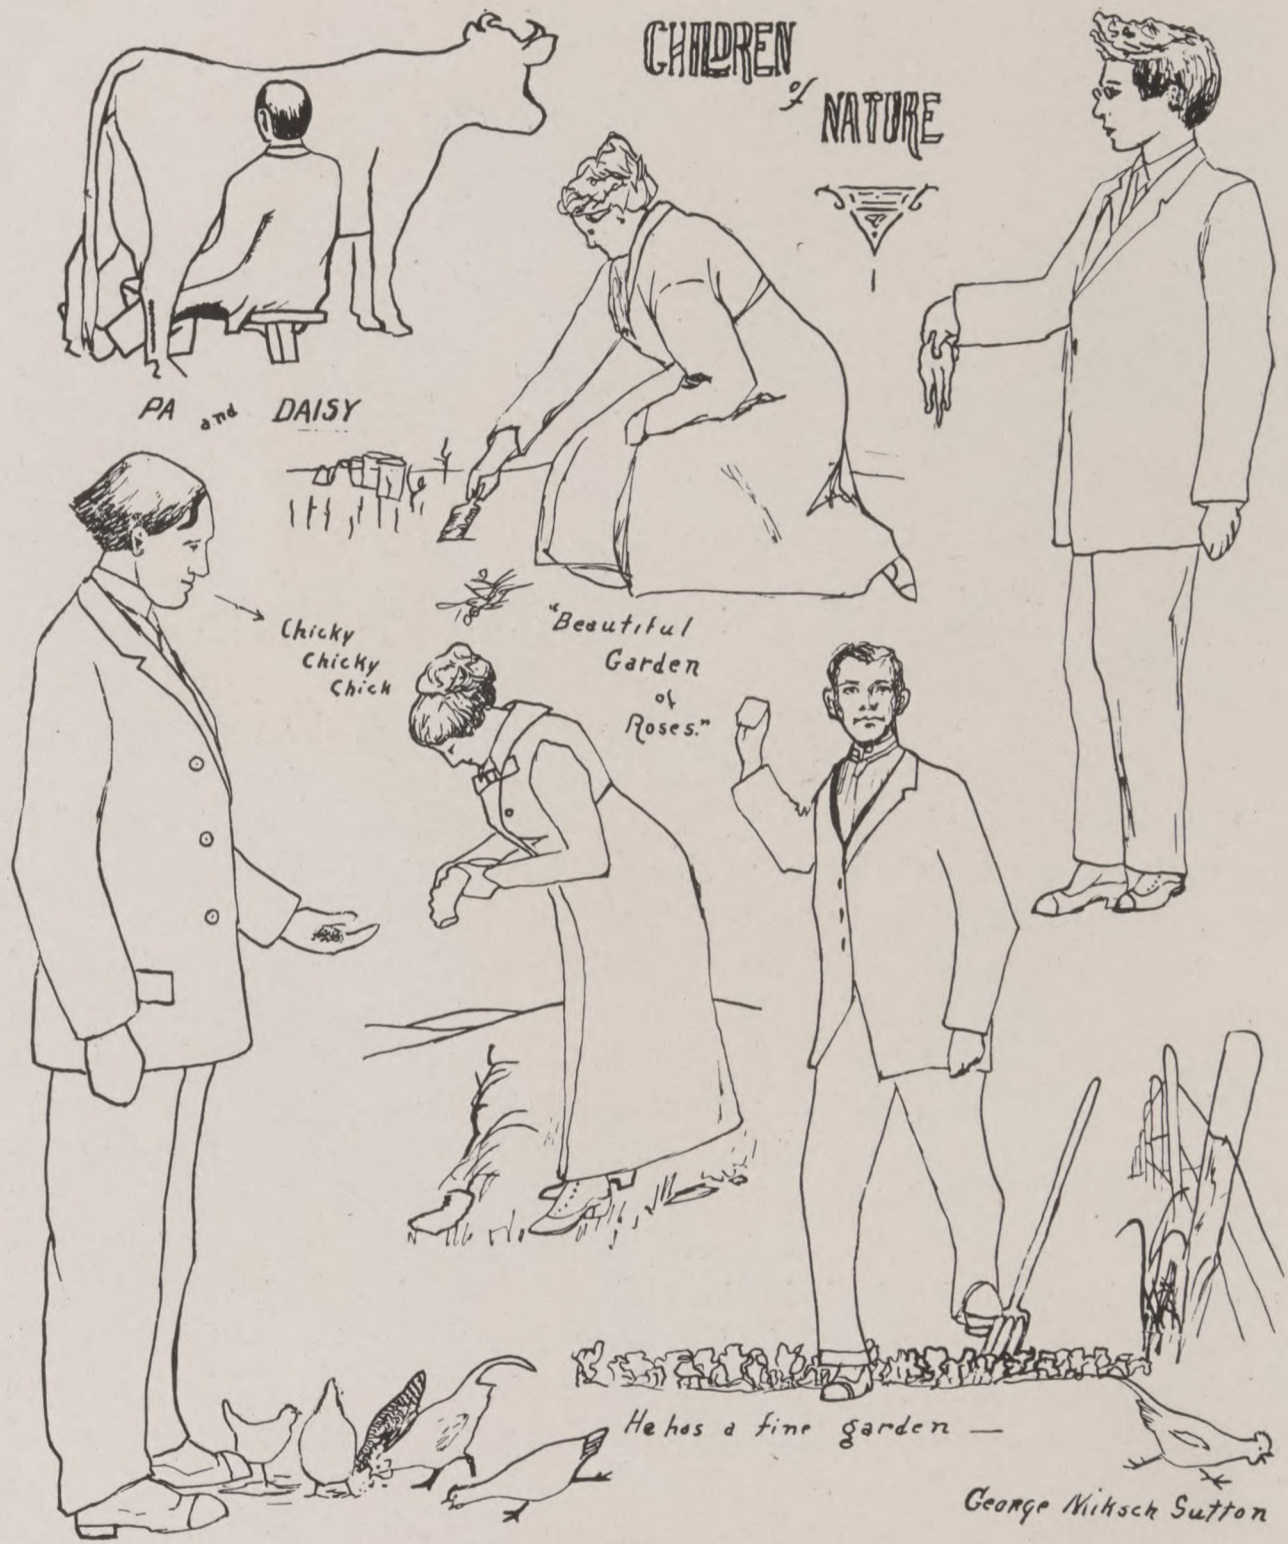 CHILDREN
of
NATURE
PA and DAISY
Chicky
Chicky
Chick
"Beautiful
Garden
of
Roses."
He has a fine garden —
George Miksch Sutton